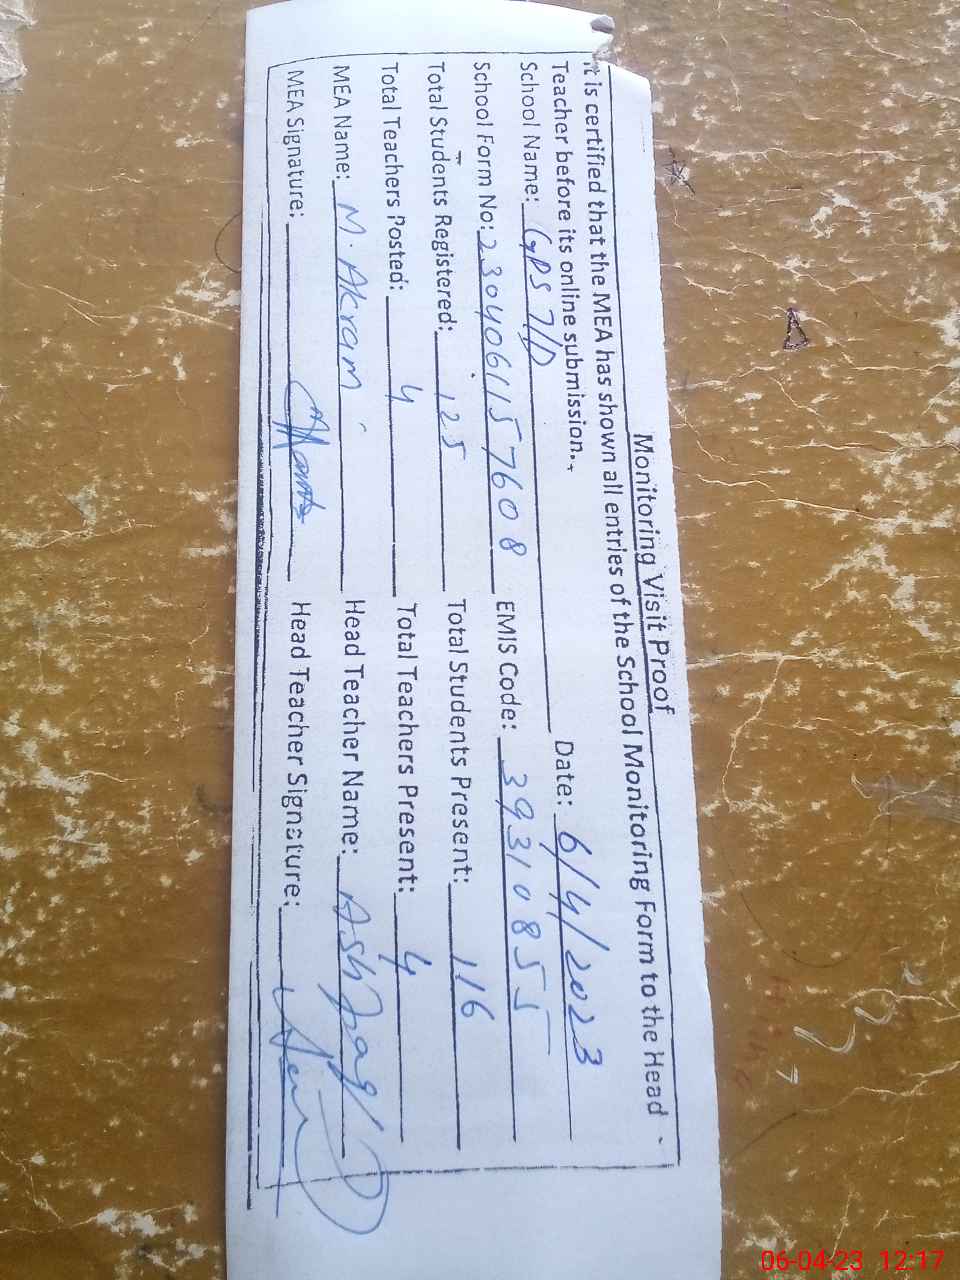 Monitoring Visit Proof
It is certified that the MEA has shown all entries of the School Monitoring Form to the Head
Teacher before its online submission.
School Name: GPS 7/D Date: 6/4/2023
School Form No: 2304061157608 EMIS Code: 39310855
Total Students Registered: 125 Total Students Present: 116
Total Teachers Posted: 4 Total Teachers Present: 4
MEA Name: M. Akram Head Teacher Name: Ashfaq
MEA Signature: Head Teacher Signature:
06-04-23 12:17